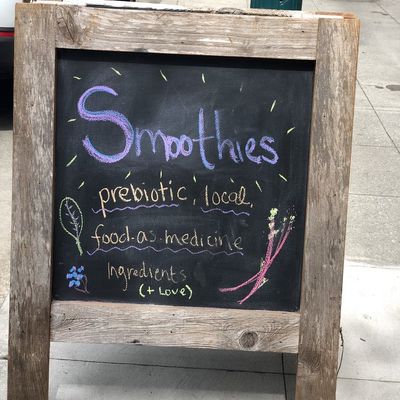 Smoothies
prebiotic, local,
food-as-medicine
Ingredients
(+ Love)